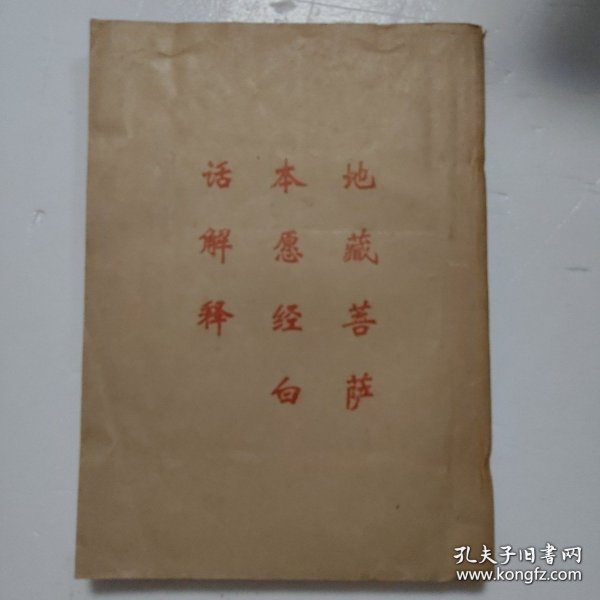 地藏菩萨
本愿经白
话解释
孔夫子旧書网
www.kongfz.com